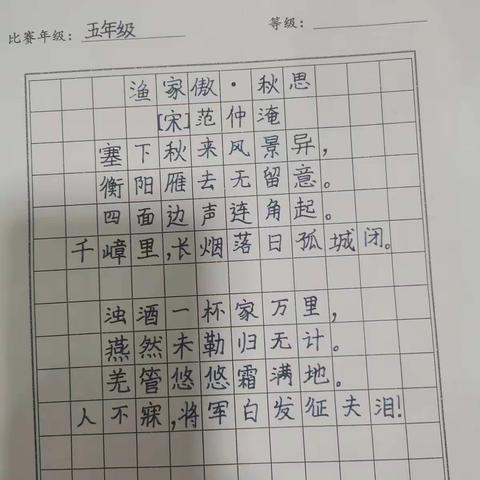 比赛年级：五年级 等级：
渔家傲·秋思
[宋]范仲淹
塞下秋来风景异，
衡阳雁去无留意。
四面边声连角起。
千嶂里，长烟落日孤城闭。
浊酒一杯家万里，
燕然未勒归无计。
羌管悠悠霜满地。
人不寐，将军白发征夫泪！